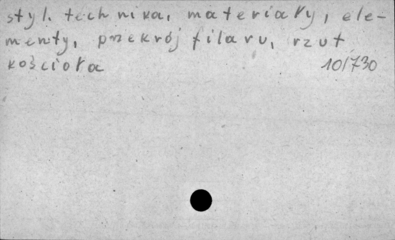 styl. technika, materiały, ele-
menty, przekrój filaru, rzut
kościoła 101730